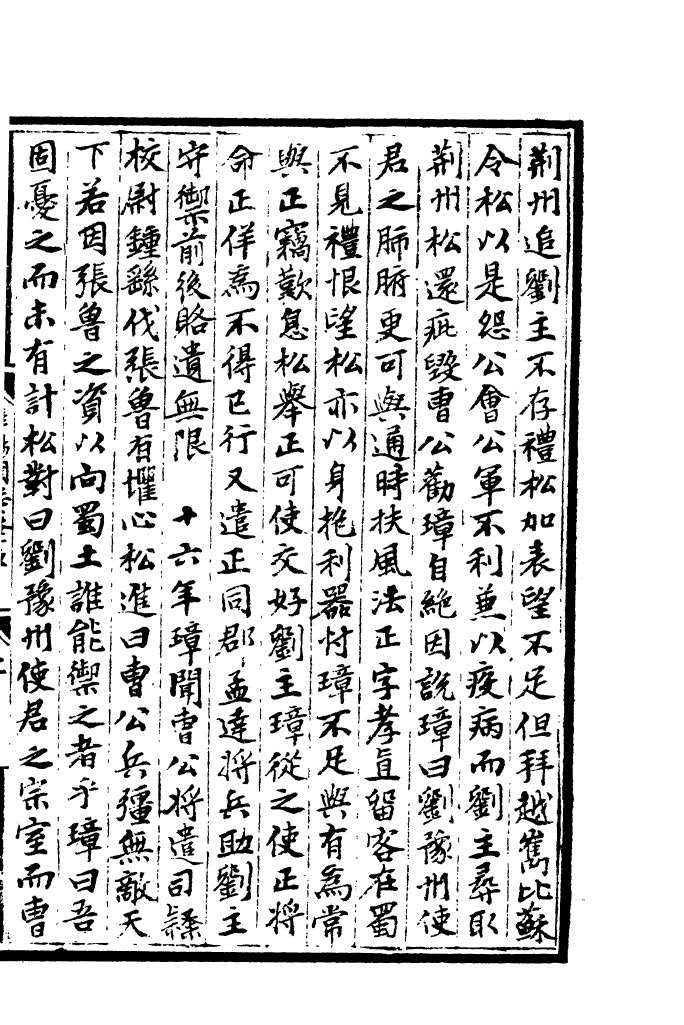 荆州追劉主不存禮松加表望不足但拜越嶲比蘇
令松以是怨公會公軍不利兼以疫病而劉主尋取
荆州松還疵毀曹公勸璋自絶因說璋曰劉豫州使
君之肺腑更可與通時扶風法正字孝直留客在蜀
不見禮恨望松亦以身抱利器忖璋不足與有爲常
與正竊歎息松舉正可使交好劉主璋從之使正將
命正佯爲不得已行又遣正同郡孟達將兵助劉主
守禦前後賂遺無限　十六年璋聞曹公將遣司隸
校尉鍾繇伐張魯有懼心松進曰曹公兵彊無敵天
下若因張魯之資以向蜀土誰能禦之者乎璋曰吾
固憂之而未有計松對曰劉豫州使君之宗室而曹